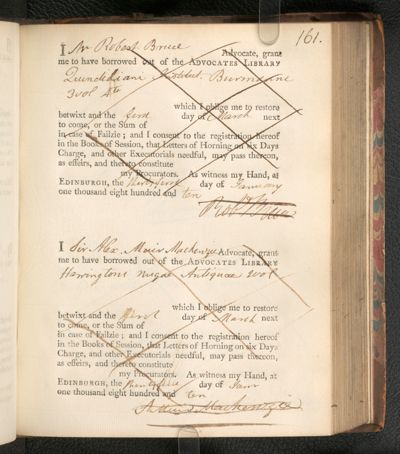 161.
I Mr Robert Bruce Advocate, grant
me to have borrowed out of the ADVOCATES LIBRARY
Burmanni
3 vol 4to
which I oblige me to restore
betwixt and the first day of March next
to come, or the Sum of
in case of Failzie; and I consent to the registration hereof
in the Books of Session, that Letters of Horning on six Days
Charge, and other Executorials needful, may pass thereon,
as effeirs, and thereto constitute
my Procurators. As witness my Hand, at
EDINBURGH, the day of January
one thousand eight hundred and ten
Robt Bruce
I Sir Alex Muir Mackenzie Advocate, grant
me to have borrowed out of the ADVOCATES LIBRARY
Harringtons nugae Antiquae 2 vol
which I oblige me to restore
betwixt and the first day of March next
to come, or the Sum of
in case of Failzie; and I consent to the registration hereof
in the Books of Session, that Letters of Horning on six Days
Charge, and other Executorials needful, may pass thereon,
as effeirs, and thereto constitute
my Procurators. As witness my Hand, at
EDINBURGH, the day of Janr
one thousand eight hundred and ten
A Muir Mackenzie